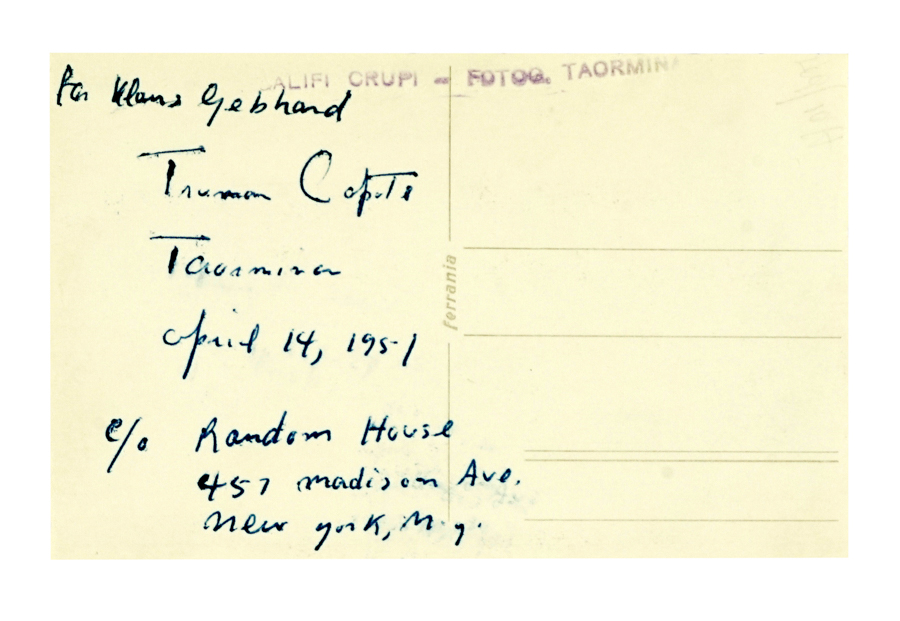 For Klaus Gebhard
ALIFI CRUPI - FOTOG. TAORMINA
Truman Capote
Taormina
April 14, 1951
ferrania
c/o Random House
457 Madison Ave.
New York, N.Y.